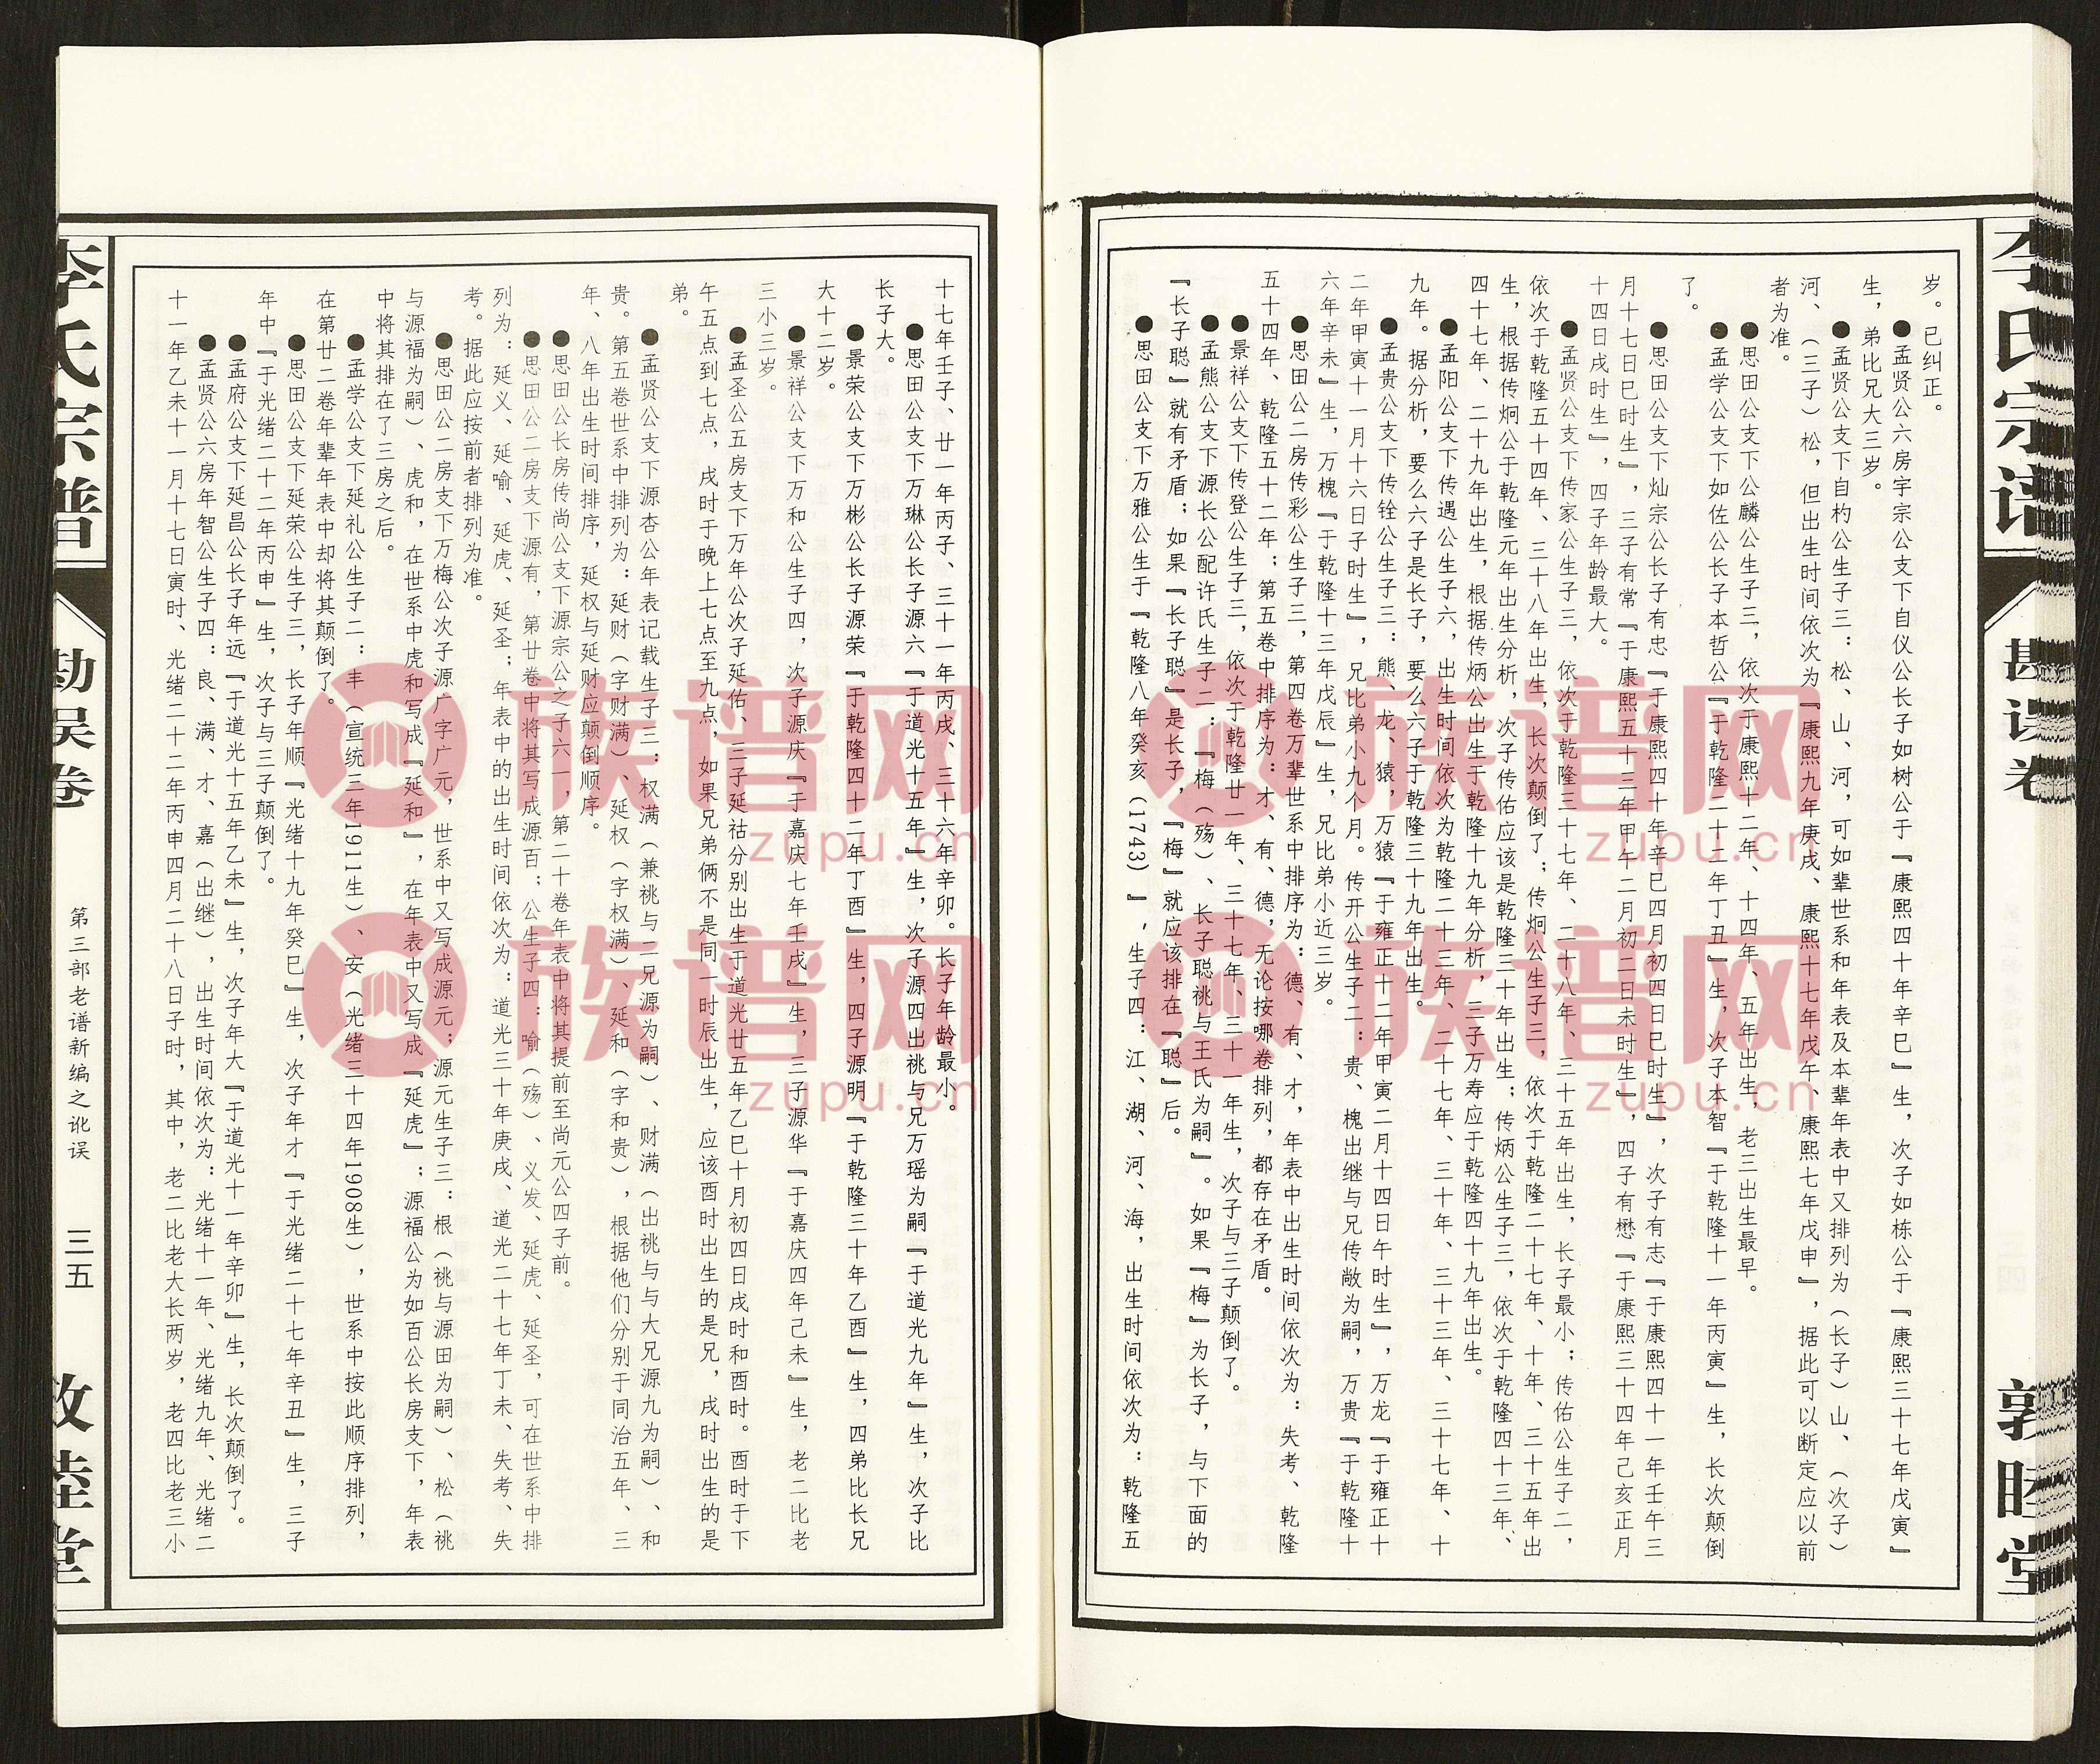 李氏宗谱
勘误卷
敦睦堂
岁。已纠正。
●孟贤公六房宇宗公支下自仪公长子如树公于『康熙四十年辛巳』生，次子如栋公于『康熙三十七年戊寅』
生，弟比兄大三岁。
●孟贤公支下自杓公生子三：松、山、河，可如辈世系和年表及本辈年表中又排列为（长子）山、（次子）
河、（三子）松，但出生时间依次为『康熙九年庚戌、康熙十七年戊午、康熙七年戊申』，据此可以断定应以前
者为准。
●思田公支下公麟公生子三，依次于康熙十二年、十四年、五年出生，老三出生最早。
●孟学公支下如佐公长子本哲公『于乾隆二十二年丁丑』生，次子本智『于乾隆十一年丙寅』生，长次颠倒
了。
●思田公支下灿宗公长子有忠『于康熙四十年辛巳四月初四日巳时生』，次子有志『于康熙四十一年壬午三
月十七日巳时生』，三子有常『于康熙五十三年甲午二月初二日未时生』，四子有懋『于康熙三十四年己亥正月
十四日戌时生』，四子年龄最大。
●孟贤公支下传家公生子三，依次于乾隆三十七年、二十八年、三十五年出生，长子最小；传佑公生子二，
依次于乾隆五十四年、三十八年出生，长次颠倒了；传炯公生子三，依次于乾隆二十七年、十年、三十五年出
生，根据传炯公于乾隆元年出生分析，次子传佑应该是乾隆三十年出生；传炳公生子三，依次于乾隆四十三年、
四十七年、二十九年出生，根据传炳公出生于乾隆十九年分析，三子万寿应于乾隆四十九年出生。
●孟阳公支下传遇公生子六，出生时间依次为乾隆二十三年、二十七年、三十年、三十三年、三十七年、十
九年。据分析，要么六子是长子，要么六子于乾隆三十九年出生。
●孟贵公支下传铨公生子三：熊、龙、猿，万猿『于雍正十二年甲寅二月十四日午时生』，万龙『于雍正十
二年甲寅十一月十六日子时生』，兄比弟小九个月。传开公生子二：贵、槐出继与兄传敞为嗣，万贵『于乾隆十
六年辛未』生，万槐『于乾隆十三年戊辰』生，兄比弟小近三岁。
●思田公二房传彩公生子三，第四卷万辈世系中排序为：德、有、才，年表中出生时间依次为：失考、乾隆
五十四年、乾隆五十二年；第五卷中排序为：才、有、德，无论按哪卷排列，都存在矛盾。
●景祥公支下传登公生子三，依次于乾隆廿一年、三十七年、三十一年生，次子与三子颠倒了。
●孟熊公支下源长公配许氏生子二：『梅（殇）、长子聪祧与王氏为嗣』。如果『梅』为长子，与下面的
『长子聪』就有矛盾；如果『长子聪』是长子，『梅』就应该排在『聪』后。
●思田公支下万雅公生于『乾隆八年癸亥（1743）』，生子四：江、湖、河、海，出生时间依次为：乾隆五
十七年壬子、廿一年丙子、三十一年丙戌、三十六年辛卯。长子年龄最小。
●思田公支下万琳公长子源六『于道光十五年』生，次子源四出祧与兄万瑶为嗣『于道光九年』生，次子比
长子大。
●景荣公支下万彬公长子源荣『于乾隆四十二年丁酉』生，四子源明『于乾隆三十年乙酉』生，四弟比长兄
大十二岁。
●景祥公支下万和公生子四，次子源庆『于嘉庆七年壬戌』生，三子源华『于嘉庆四年己未』生，老二比老
三小三岁。
●孟圣公五房支下万年公次子延佑、三子延祜分别出生于道光廿五年乙巳十月初四日戌时和酉时。酉时于下
午五点到七点，戌时于晚上七点至九点，如果兄弟俩不是同一时辰出生，应该酉时出生的是兄，戌时出生的是
弟。
●孟贤公支下源杏公年表记载生子三：权满（兼祧与二兄源为嗣）、财满（出祧与与大兄源九为嗣）、和
贵。第五卷世系中排列为：延财（字财满）、延权（字权满）、延和（字和贵），根据他们分别于同治五年、三
年、八年出生时间排序，延权与延财应颠倒顺序。
●思田公长房传尚公支下源宗公之子六一，第二十卷年表中将其提前至尚元公四子前。
●思田公二房支下源有，第廿卷中将其写成源百；公生子四：喻（殇）、义发、延虎、延圣，可在世系中排
列为：延义、延喻、延虎、延圣；年表中的出生时间依次为：道光三十年庚戌、道光二十七年丁未、失考、失
考。据此应按前者排列为准。
●思田公二房支下万梅公次子源广字广元，世系中又写成源元；源元生子三：根（祧与源田为嗣）、松（祧
与源福为嗣）、虎和，在世系中虎和写成『延和』，在年表中又写成『延虎』；源福公为如百公长房支下，年表
中将其排在了三房之后。
●孟学公支下延礼公生子二：丰（宣统三年1911生）、安（光绪三十四年1908生），世系中按此顺序排列，
在第廿二卷年辈年表中却将其颠倒了。
●思田公支下延荣公生子三，长子年顺『光绪十九年癸巳』生，次子年才『于光绪二十七年辛丑』生，三子
年中『于光绪二十二年丙申』生，次子与三子颠倒了。
●孟府公支下延昌公长子年远『于道光十五年乙未』生，次子年大『于道光十一年辛卯』生，长次颠倒了。
●孟贤公六房年智公生子四：良、满、才、嘉（出继），出生时间依次为：光绪十一年、光绪九年、光绪二
十一年乙未十一月十七日寅时、光绪二十二年丙申四月二十八日子时，其中，老二比老大长两岁，老四比老三小
李氏宗谱
勘误卷
第三部老谱新编之讹误
三五
敦睦堂
族谱网
zupu.cn
族谱网
zupu.cn
族谱网
zupu.cn
族谱网
zupu.cn